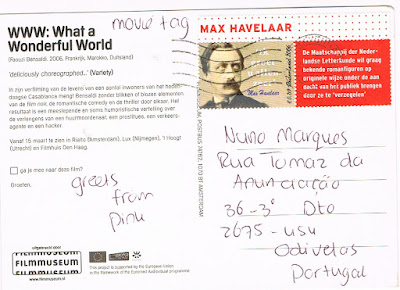 movie tag
WWW: What a
Wonderful World
(Faouzi Bensaïdi, 2006, Frankrijk, Marokko, Duitsland)
'deliciously choreographed...' (Variety)
In zijn verfilming van de levens van een aantal inwoners van het heden-
daagse Casablanca mengt Bensaïdi zonder blikken of blozen elementen
van de film noir, de romantische comedy en de thriller door elkaar. Het
resultaat is een meeslepende en soms humoristische vertelling over
de verlangens van een huurmoordenaar, een prostituee, een verkeers-
agente en een hacker.
Vanaf 15 maart te zien in Rialto (Amsterdam), Lux (Nijmegen), 't Hoogt
(Utrecht) en Filmhuis Den Haag.
ga je mee naar deze film?
Groeten,
greets
from
pink
uitgebracht door
FILMMUSEUM
FILMMUSEUM
www.filmmuseum.nl
This project is supported by the European Union
in the framework of the Euromed Audiovisual programme.
POSTBUS 74782, 1070 BT AMSTERDAM
MAX HAVELAAR
Max Havelaar
Nederland 2006
De Maatschappij der Neder-
landse Letterkunde wil graag
bekende romanfiguren op
originele wijze onder de aan
nacht van het publiek brengen
door ze te "verzegelen"
Nuno Marques
Rua Tomaz da
Anunciação
36-3° Dto
2675-454
Odivelas
Portugal